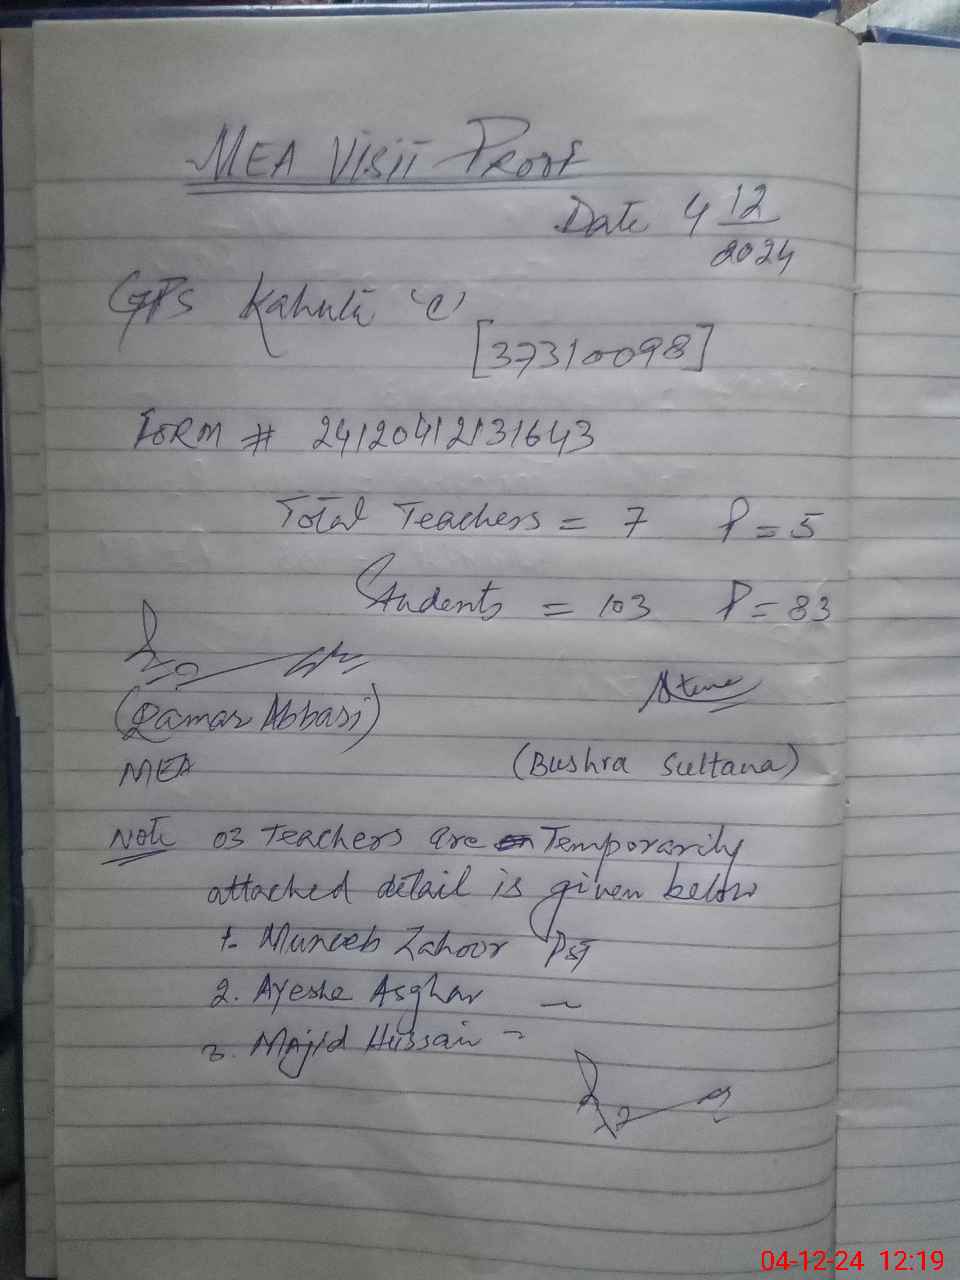 MEA Visit Proof
Date 4 12/2024
GPS Kahuta 'C'
[37310098]
FORM # 24120412131643
Total Teachers = 7 P = 5
Students = 103 P = 83
(Qamar Abbasi)
MEA
(Bushra Sultana)
Note 03 Teachers are Temporarily
attached detail is given below
1. Muneeb Zahoor PST
2. Ayesha Asghar ~
3. Majid Hussain ~
04-12-24 12:19